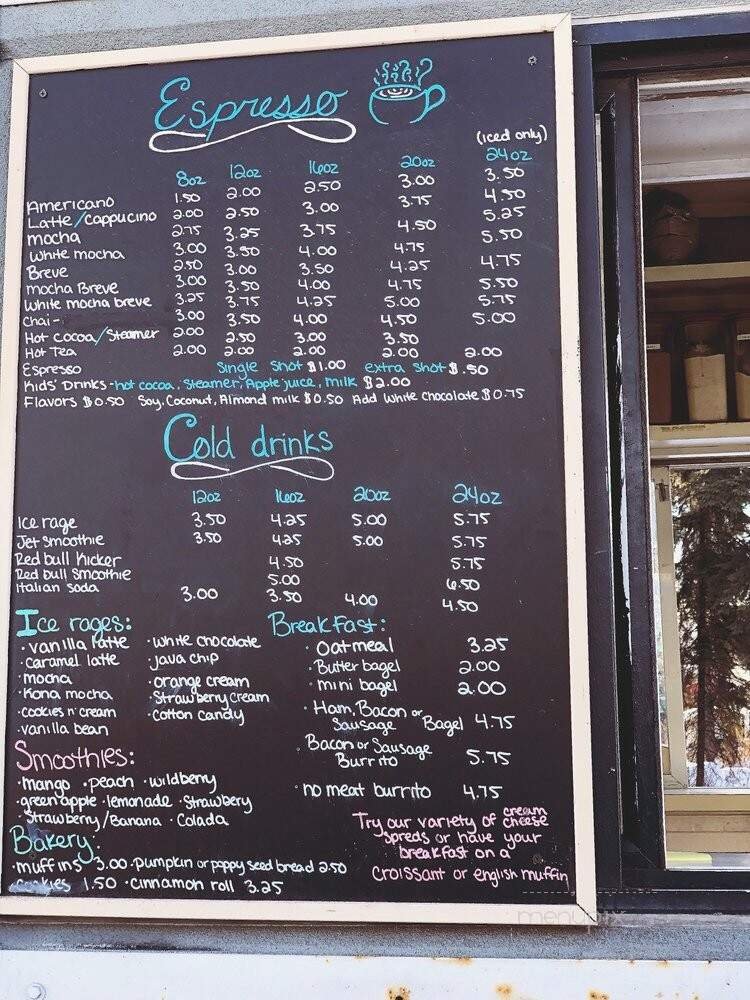 Espresso
(iced only)
8oz 12oz 16oz 20oz 24oz
Americano 1.50 2.00 2.50 3.00 3.50
Latte/Cappucino 2.00 2.50 3.00 3.75 4.50
mocha 2.75 3.25 3.75 4.50 5.25
White mocha 3.00 3.50 4.00 4.75 5.50
Breve 2.50 3.00 3.50 4.25 4.75
mocha Breve 3.00 3.50 4.00 4.75 5.50
White mocha breve 3.25 3.75 4.25 5.00 5.75
Chai- 3.00 3.50 4.00 4.50 5.00
Hot cocoa/Steamer 2.00 2.50 3.00 3.50
Hot Tea 2.00 2.00 2.00 2.00 2.00
Espresso Single Shot $1.00 extra shot $.50
Kids' Drinks - hot cocoa, Steamer, Apple juice, milk $2.00
Flavors $0.50 Soy, Coconut, Almond milk $0.50 Add White Chocolate $0.75
Cold drinks
12oz 16oz 20oz 24oz
Ice rage 3.50 4.25 5.00 5.75
Jet Smoothie 3.50 4.25 5.00 5.75
Red bull Kicker 4.50 5.75
Red bull Smoothie 5.00 6.50
Italian Soda 3.00 3.50 4.00 4.50
Ice rages:
· vanilla latte · White chocolate
· caramel latte · java chip
· mocha · orange cream
· Kona mocha · Strawberry cream
· cookies n' cream · Cotton candy
· vanilla bean
Breakfast:
· Oatmeal 3.25
· Butter bagel 2.00
· mini bagel 2.00
· Ham, Bacon or
Sausage Bagel 4.75
· Bacon or Sausage
Burrito 5.75
· no meat burrito 4.75
Smoothies:
· mango · peach · wildberry
· green apple · lemonade · Strawbery
· Strawberry/Banana · Colada
Bakery:
· muffins 3.00 · Pumpkin or poppy seed bread 2.50
cookies 1.50 · cinnamon roll 3.25
Try our variety of cream cheese
spreds or have your
breakfast on a
Croissant or english muffin